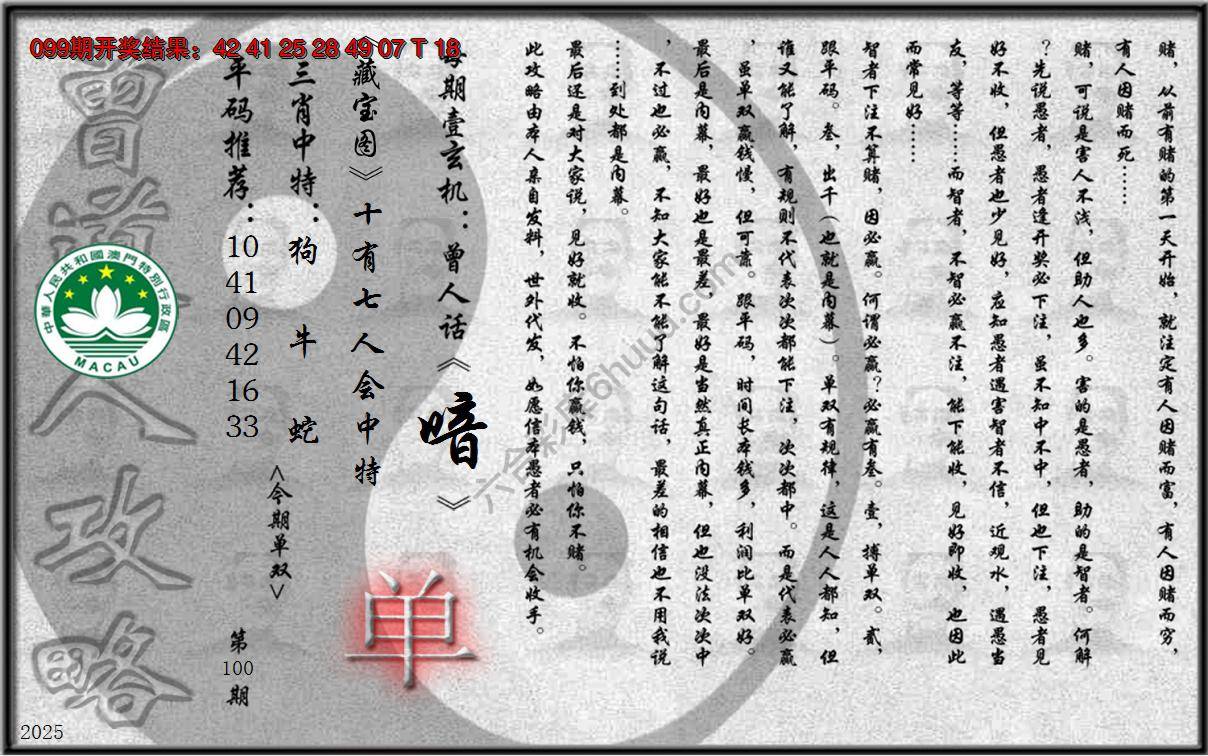 099期开奖结果：42 41 25 28 49 07 T 18
赌，从前有赌的第一天开始，就注定有人因赌而富，有人因赌而穷，
有人因赌而死……
赌，可说是害人不浅，但助人也多。害的是愚者，助的是智者。何解
？先说愚者，愚者逢开奖必下注，虽不知中不中，但也下注，愚者见
好不收，但愚者也少见好，应知愚者遇害智者不信，近观水，遇愚当
友，等等……而智者，不智必赢不注，能下能收，见好即收，也因此
而常见好……
智者下注不算赌，因必赢。何谓必赢？必赢有叁。壹，搏单双。贰，
跟平码。叁，出千（也就是内幕）。单双有规律，这是人人都知，但
谁又能了解，有规则不代表次次都能下注，次次都中。而是代表必赢
，虽单双赢钱慢，但可靠。跟平码，时间长本钱多，利润比单双好。
最后是内幕，最好也是最差，最好是当然真正内幕，但也没法次次中
，不过也必赢，不知大家能不能了解这句话，最差的相信也不用我说
……到处都是内幕。
最后还是对大家说，见好就收。不怕你赢钱，只怕你不赌。
此攻略由本人亲自发料，世外代发，如愿信本愚者必有机会收手。
每期壹玄机：曾人话《暗》
《藏宝图》十有七人会中特
三肖中特：狗 牛 蛇
平码推荐：10 41 09 42 16 33
<今期单双>
单
第100期
曾道人攻略
中華人民共和國澳門特別行政區
MACAU
2025